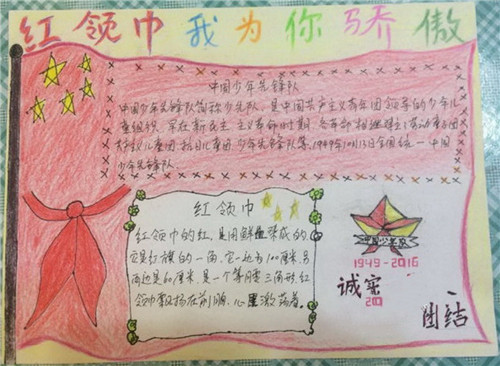 红领巾我为你骄傲
中国少年先锋队
中国少年先锋队简称少先队,是中国共产主义青年团领导的少年儿
童组织,早在新民主主义革命时期,各革命根据地建立了劳动童子团
共产儿童团,抗日儿童团,少年先锋队等,1949年10月13日全国统一中国
少年先锋队.
红领巾
红领巾的红,是用鲜血染成的,
它是红旗的一角,它一边为100厘米,另
两边是60厘米,是一个等腰三角形.红
领巾飘扬在前胸,心里激荡着.
中国少先队
1949-2016
诚实
团结